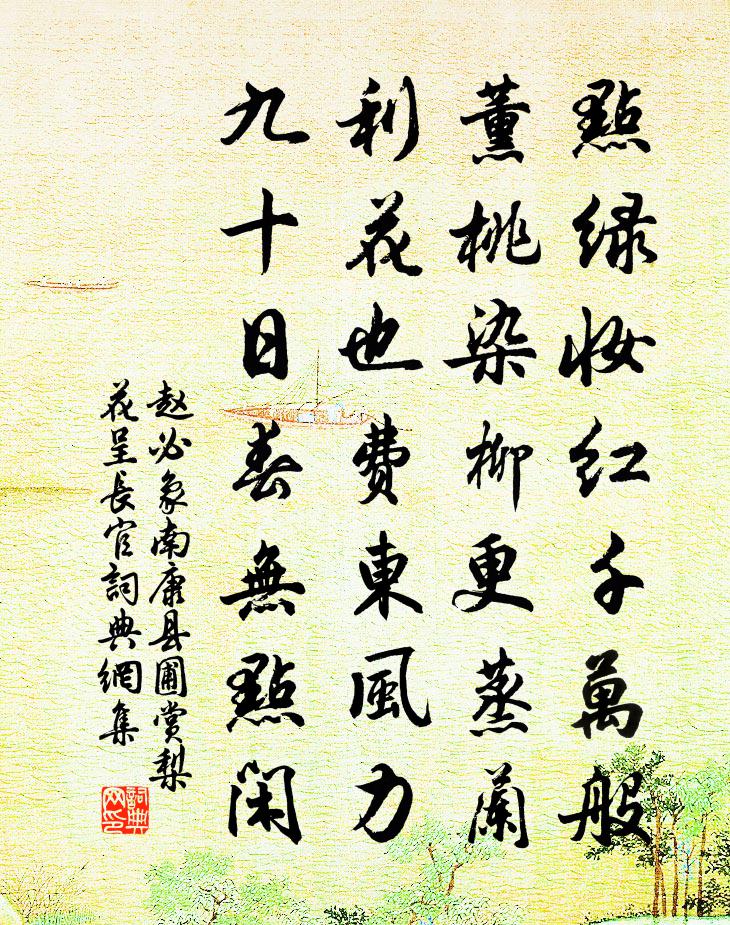 點緑妆红千萬般
薰桃染柳更蒸蘭
利花也費東風力
九十日春無點闲
赵必象南康县圃赏梨
花呈長官詞典網集
詞典网印